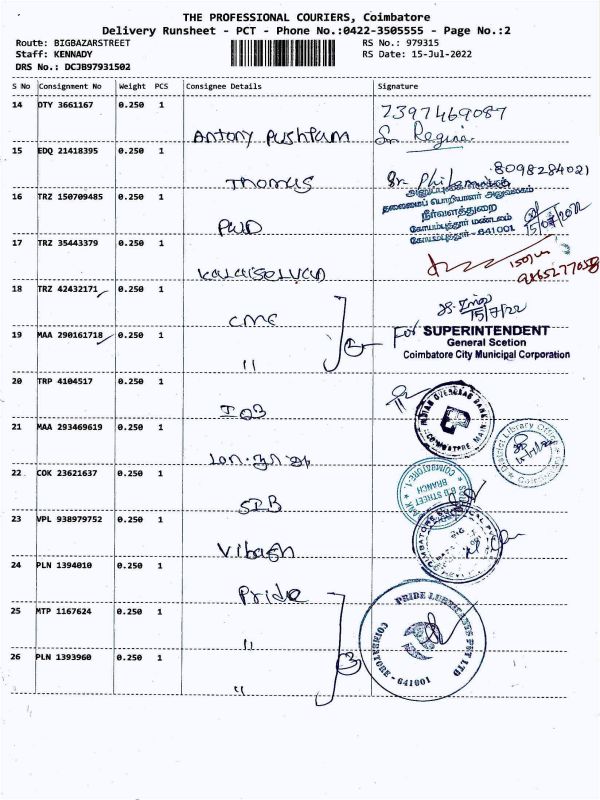 THE PROFESSIONAL COURIERS, Coimbatore
Delivery Runsheet - PCT - Phone No.:0422-3505555 - Page No.:2
Route: BIGBAZARSTREET
RS No.: 979315
Staff: KENNADY
RS Date: 15-Jul-2022
DRS No.: DCJB97931502
S No Consignment No Weight PCS Consignee Details Signature
14 DTY 3661167 0.250 1 Antony Pushpam 7397469087
Sr Regina
15 EDQ 21418395 0.250 1 Thomus Sr. Philomina 8098284021
16 TRZ 150709485 0.250 1 PWD
தலைமைப் பொறியாளர் அலுவலகம்
நீர்வளத்துறை
கோயம்புத்தூர் மண்டலம்
கோயம்புத்தூர் - 641001
15/07/2022
17 TRZ 35443379 0.250 1 Kalaiselvan
18 TRZ 42432171 0.250 1 CMC
15/7/22
19 MAA 290161718 0.250 1 "
2
For SUPERINTENDENT
General Scetion
Coimbatore City Municipal Corporation
20 TRP 4104517 0.250 1 IOB
INDIAN OVERSEAS BANK
COIMBATORE MAIN
21 MAA 293469619 0.250 1 மா.நூ.அ
District Library Office
Coimbatore
22 COK 23621637 0.250 1 SIB
B.B STREET
BRANCH
COIMBATORE-1.
23 VPL 938979752 0.250 1 Vibagh
24 PLN 1394010 0.250 1 Pride
25 MTP 1167624 0.250 1 "
3
PRIDE LUBRICANTS PVT LTD
COIMBATORE - 641001
26 PLN 1393960 0.250 1 "